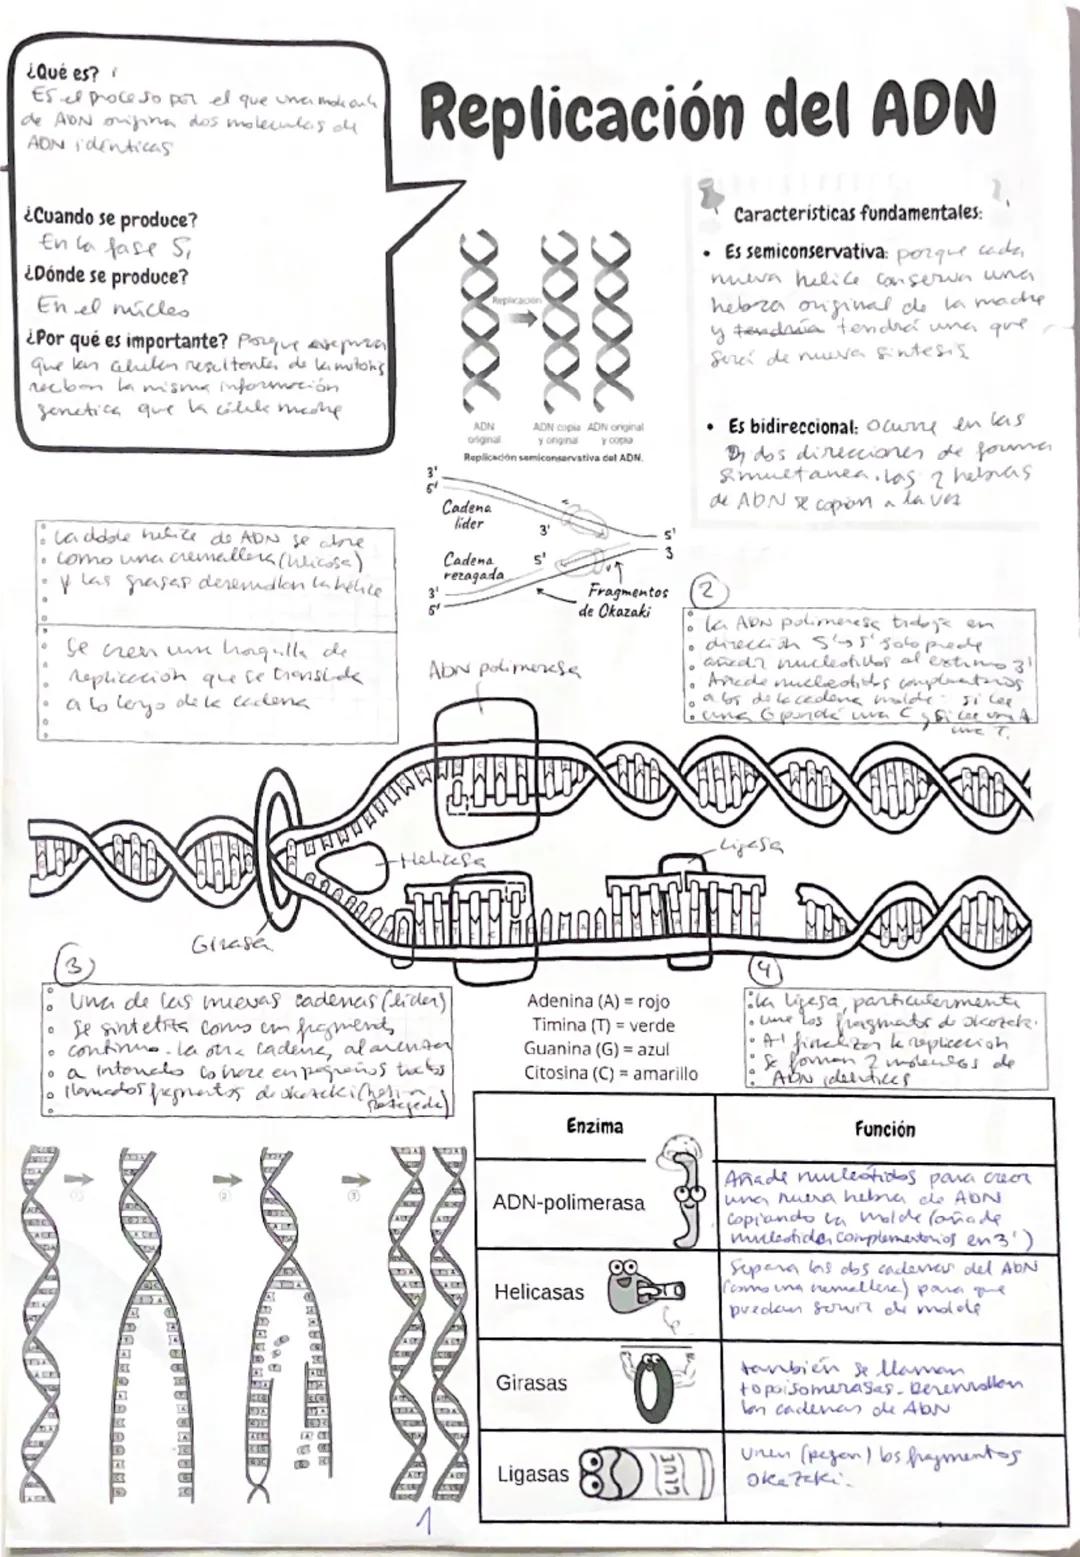 ¿Qué es?
Es el proceso por el que una molécula
de ADN origina dos moléculas de
ADN idénticas
¿Cuando se produce?
En la fase S,
¿Dónde se produce?
En el núcleo
¿Por qué es importante? Porque asegura
que las células resultantes de la mitosis
reciban la misma información
genética que la célula madre
Replicación del ADN
Replicación
ADN
original
ADN copia
y original
ADN original
y copia
Replicación semiconservativa del ADN.
Características fundamentales:
• Es semiconservativa: porque cada
nueva hélice conserva una
hebra original de la madre
y tendrá una que
será de nueva síntesis
• Es bidireccional: Ocurre en las
dos direcciones de forma
simultanea. Las 2 hebras
de ADN se copian a la vez
3'
5'
Cadena
líder
3'
5'
3
Cadena
rezagada
5'
3'
5'
Fragmentos
de Okazaki
La doble hélice de ADN se abre
como una cremallera (helicasa)
y las girasas desenrollan la hélice
Se crea una horquilla de
replicación que se translada
a lo largo de la cadena
2
La ADN polimerasa trabaja en
dirección 5'→3' solo puede
añadir nucleótidos al extremo 3'
Añade nucleótidos complementarios
a los de la cadena molde. si lee
una G pondrá una C y si lee una A
una T.
ADN polimerasa
Helicasa
Ligasa
Girasa
3
Una de las nuevas cadenas (líder)
se sintetiza como un fragmento
continuo. La otra cadena, al avanzar
a lo hace en pequeños trozos
llamados fragmentos de okazaki (hebra
retrasada)
Adenina (A) = rojo
Timina (T) = verde
Guanina (G) = azul
Citosina (C) = amarillo
4
La ligasa, particularmente
une los fragmentos de okazaki.
Al finalizar la replicación
se forman 2 moléculas de
ADN idénticas
Enzima
Función
ADN-polimerasa
Añade nucleótidos para crear
una nueva hebra de ADN
copiando la molde (añade
nucleótidos complementarios en 3')
Helicasas
Separa las dos cadenas del ADN
(como una cremallera) para que
puedan servir de molde
Girasas
también se llaman
topoisomerasas. Desenrollan
las cadenas de ADN
Ligasas
GLUE
Unen (pegan) los fragmentos
Okazaki.
1